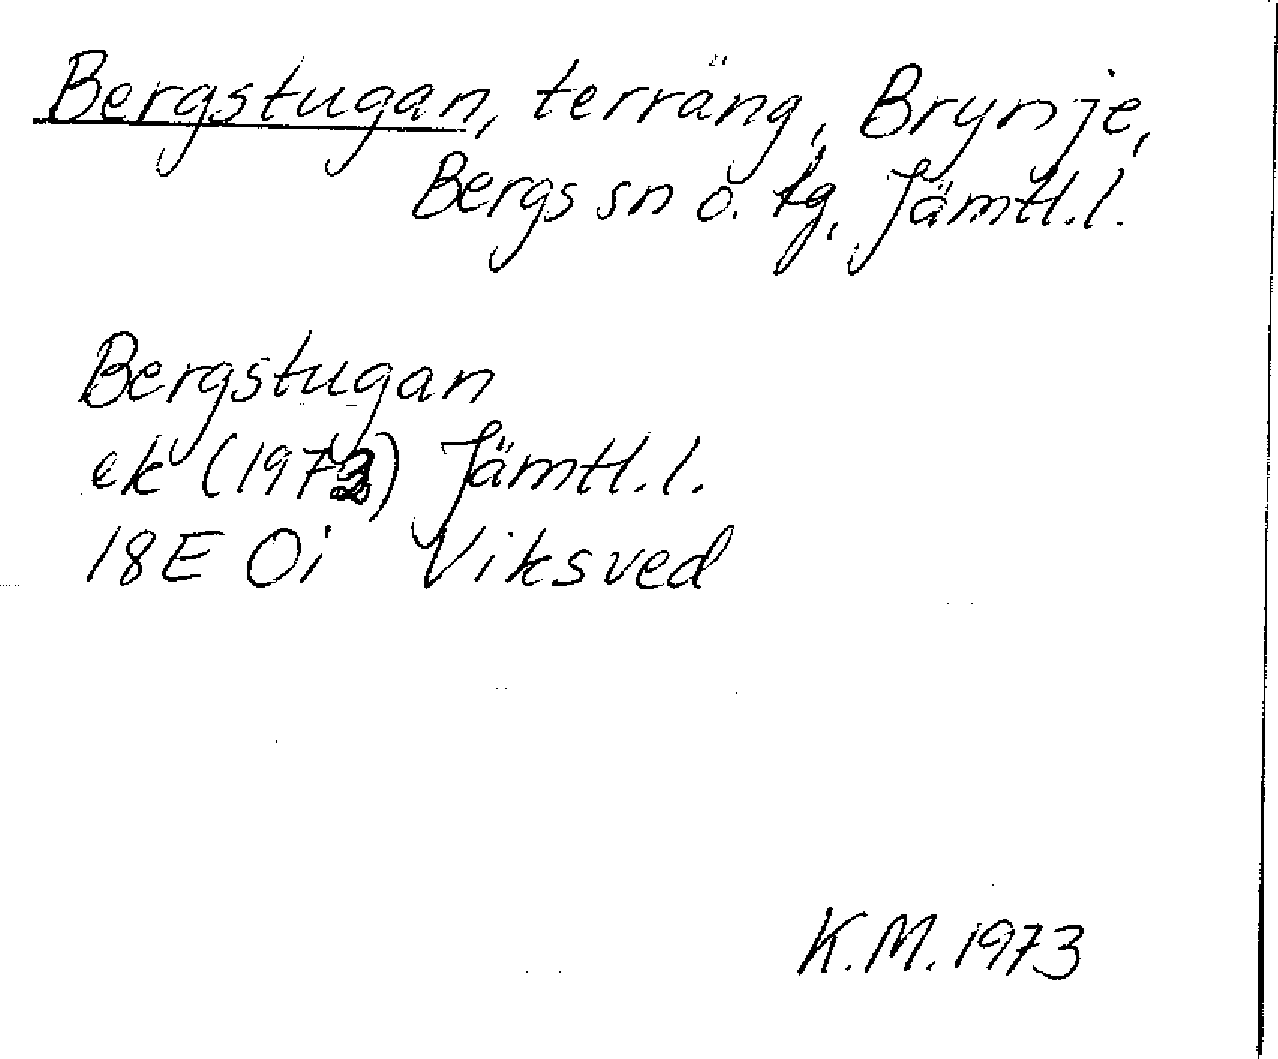 Bergstugan, terräng, Brynje,
Bergs sn o. tg, Jämtl.l.
Bergstugan
ek (1973) Jämtl.l.
18E 0i Viksved
K.M. 1973